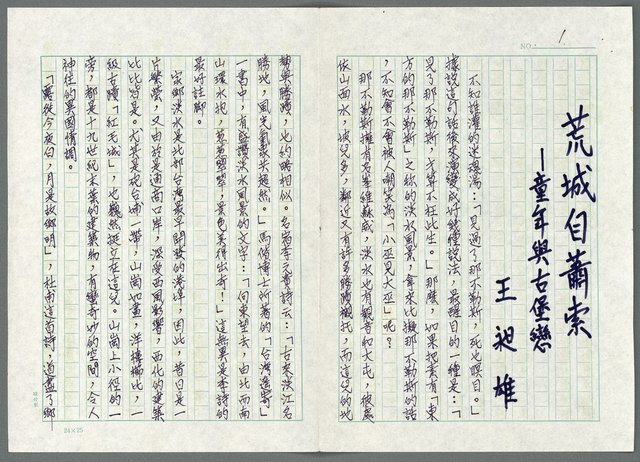 NO. 1
荒城自蕭索
—童年與古堡戀
王昶雄
不知誰灌的迷魂湯:「見過了那不勒斯,死也瞑目。」
據說這句話後來演變成好幾種說法,最醒目的一種是:「
見了那不勒斯,才算不枉此生。」那麼,如果把素有「東
方的那不勒斯」之稱的淡水風景,拿來比擬那不勒斯的話
,不知會不會被人嘲笑為「小巫見大巫」呢?
那不勒斯擁有名峯維蘇威,淡水也有觀音和大屯,彼處
依山面水,坡兒多,鄰近又有許多勝蹟襯托,而這兒的地
勢與勝蹟,也約略相似。名宿李文貴詩云:「古來淡江名
勝地,風光氣象亦超然。」馬偕博士所著的「台灣遙寄」
一書中,有盛讚淡水風景的文字:「向東望去,由北而南
山環水抱,蓊蓊鬱鬱,景色美得出奇!」這無異是李詩的
最好註腳。
家鄉淡水是北部台灣最早開放的港埠,因此,昔日是一
片繁榮,又由於是通商口岸,深受西風影響,西化的建築
比比皆是。尤其是砲台埔一帶,山崗如畫,洋樓櫛比,一
級古蹟「紅毛城」,也巍然挺立在這兒。山崗上小徑的一
旁,都是十九世紀末葉的建築物,有蠻奇妙的空間,令人
神往的異國情調。
「露從今夜白,月是故鄉明」,杜甫這首詩,道盡了鄉
24×25